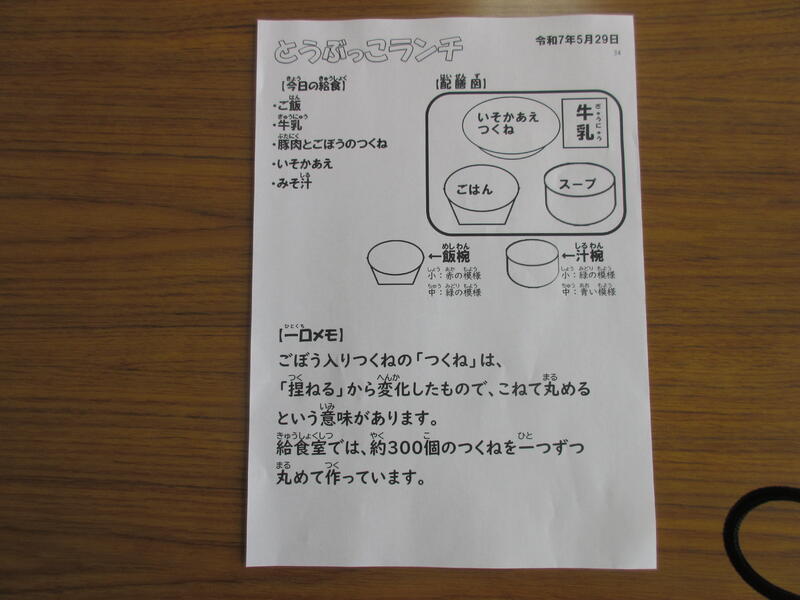 とうぶっこランチ
令和7年5月29日
【今日の給食】
・ご飯
・牛乳
・豚肉とごぼうのつくね
・いそかあえ
・みそ汁
【配膳図】
いそかあえ
つくね
牛乳
ごはん
スープ
←飯椀
小：赤の模様
中：緑の模様
←汁椀
小：緑の模様
中：青い模様
【一口メモ】
ごぼう入りつくねの「つくね」は、
「捏ねる」から変化したもので、こねて丸める
という意味があります。
給食室では、約300個のつくねを一つずつ
丸めて作っています。